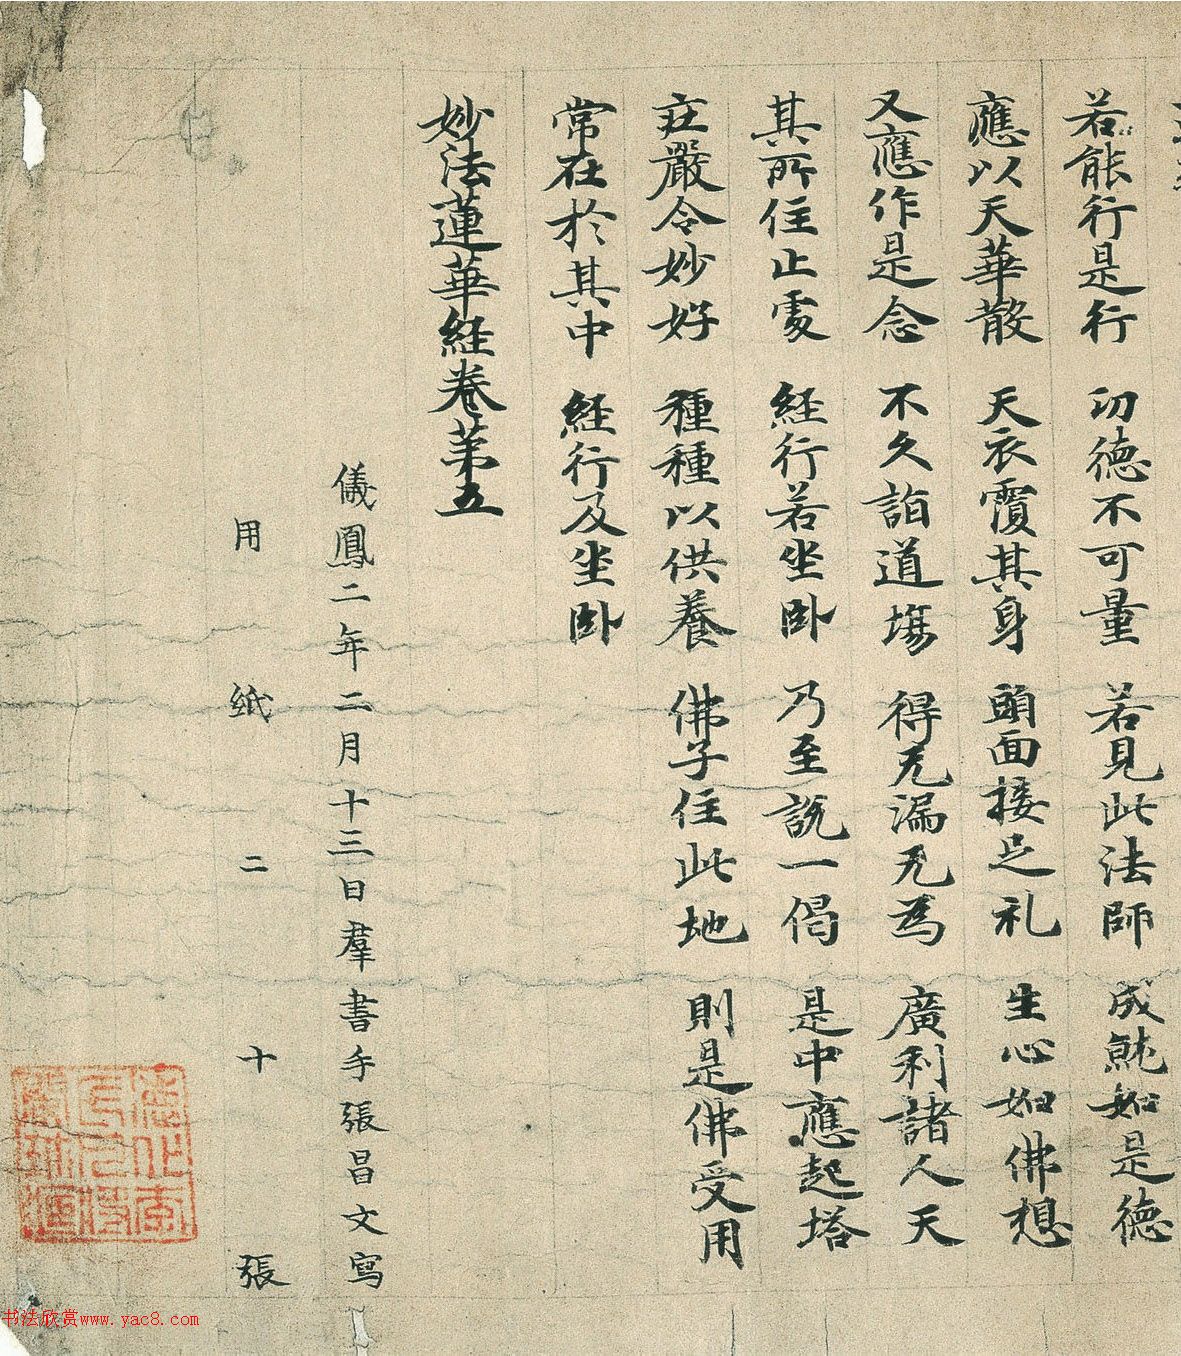 若能行是行 㓛德不可量 若見此法師 成就如是德
應以天華散 天衣覆其身 頭面接足礼 生心如佛想
又應作是念 不久詣道場 得无漏无為 廣利諸人天
其所住止處 経行若坐卧 乃至說一偈 是中應起塔
庄嚴令妙好 種種以供養 佛子住此地 則是佛受用
常在於其中 経行及坐卧
妙法蓮華経卷苐五
儀鳳二年二月十三日羣書手張昌文寫
用紙二十張
书法欣赏www.yac8.com